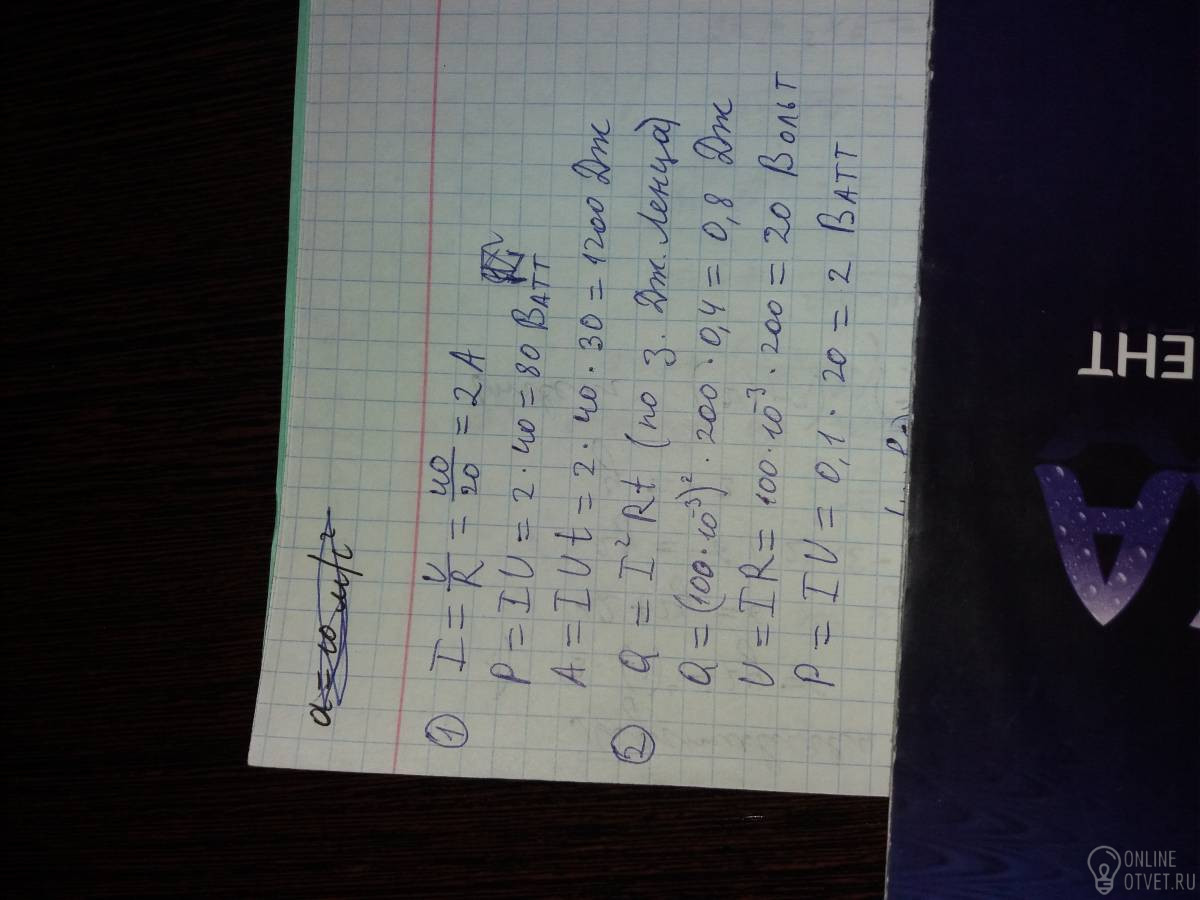 a = 10 м/с²
① I = U/R = 40/20 = 2A
P = IU = 2 · 40 = 80 ВАТТ
A = IUt = 2 · 40 · 30 = 1200 Дж
② Q = I² Rt (по З. Дж. Ленца)
Q = (100·10⁻³)² · 200 · 0,4 = 0,8 Дж
U = IR = 100·10⁻³ · 200 = 20 ВОЛЬТ
P = IU = 0,1 · 20 = 2 ВАТТ
ЕНТ
ONLINE
OTVET.RU